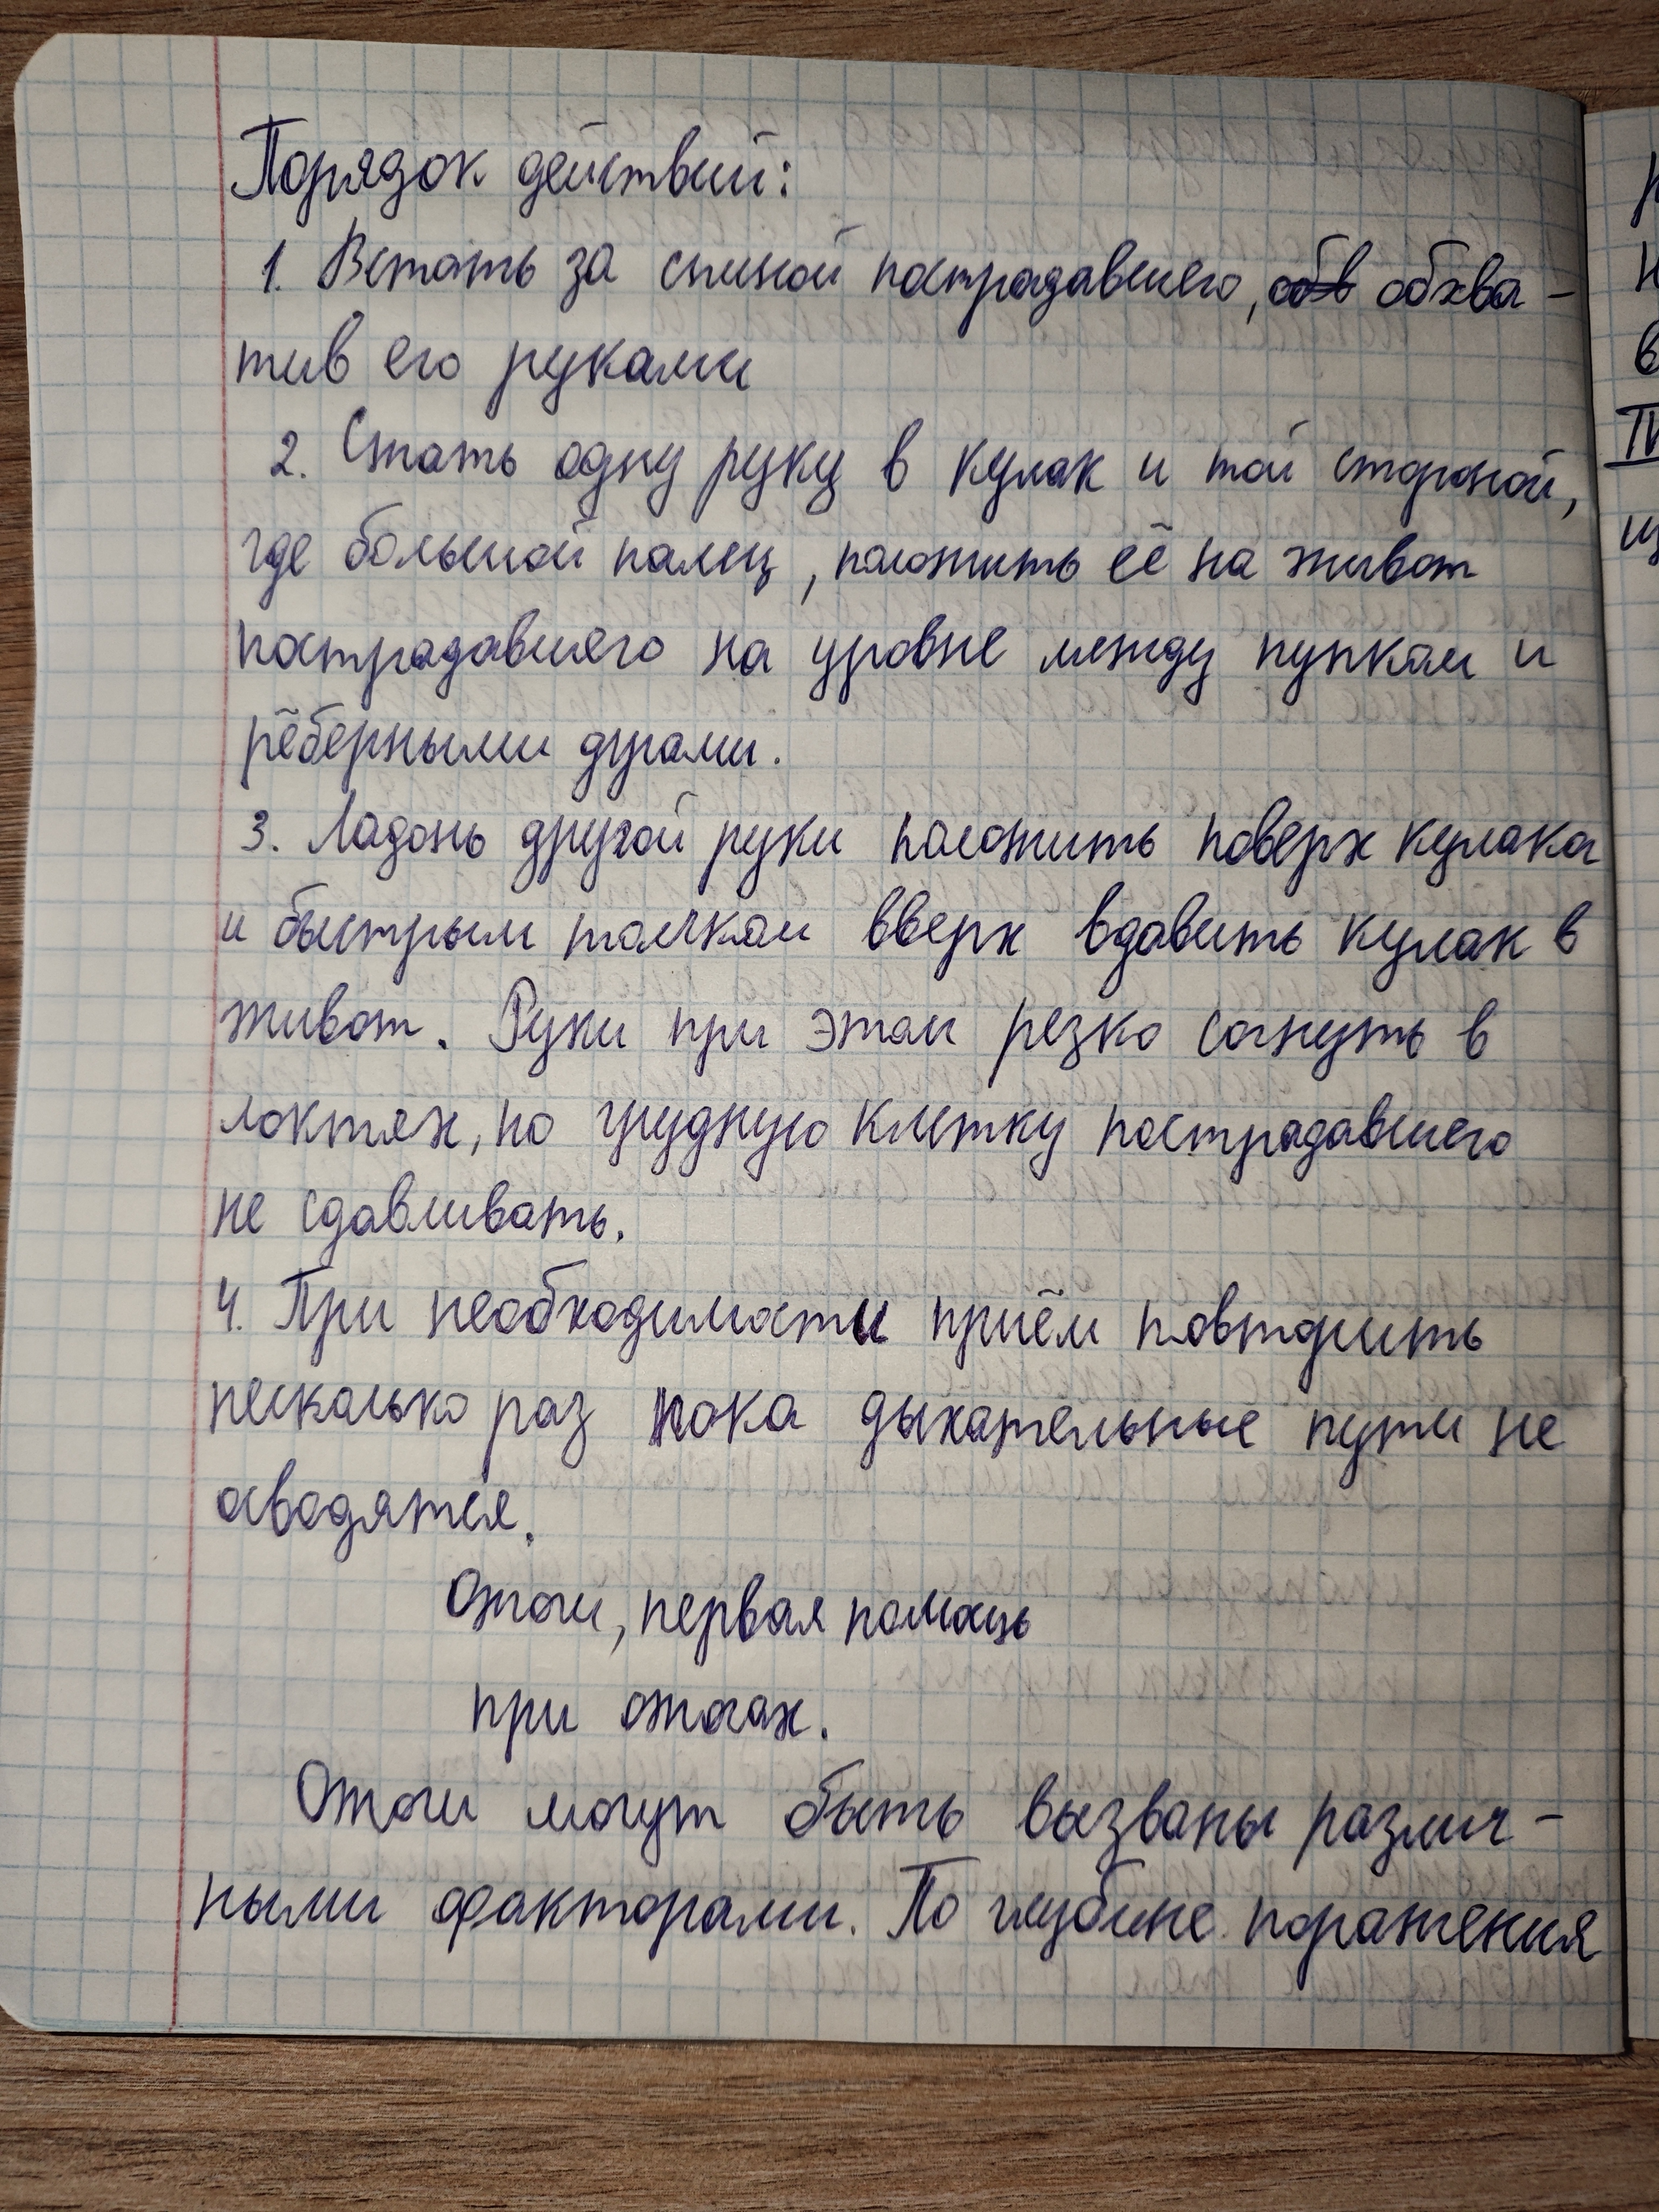 Порядок действий:
1. Встать за спиной пострадавшего, обв обхва-
тив его руками
2. Стать одну руку в кулак и той стороной,
где большой палец, положить её на живот
пострадавшего на уровне между пупком и
рёберными дугами.
3. Ладонь другой руки положить поверх кулака
и быстрым толчком вверх вдавить кулак в
живот. Руки при этом резко согнуть в
локтях, но грудную клетку пострадавшего
не сдавливать.
4. При необходимости приём повторить
несколько раз пока дыхательные пути не
Ожоги, первая помощь
при ожогах.
Ожоги могут быть вызваны различ-
ными факторами. По глубине поражения